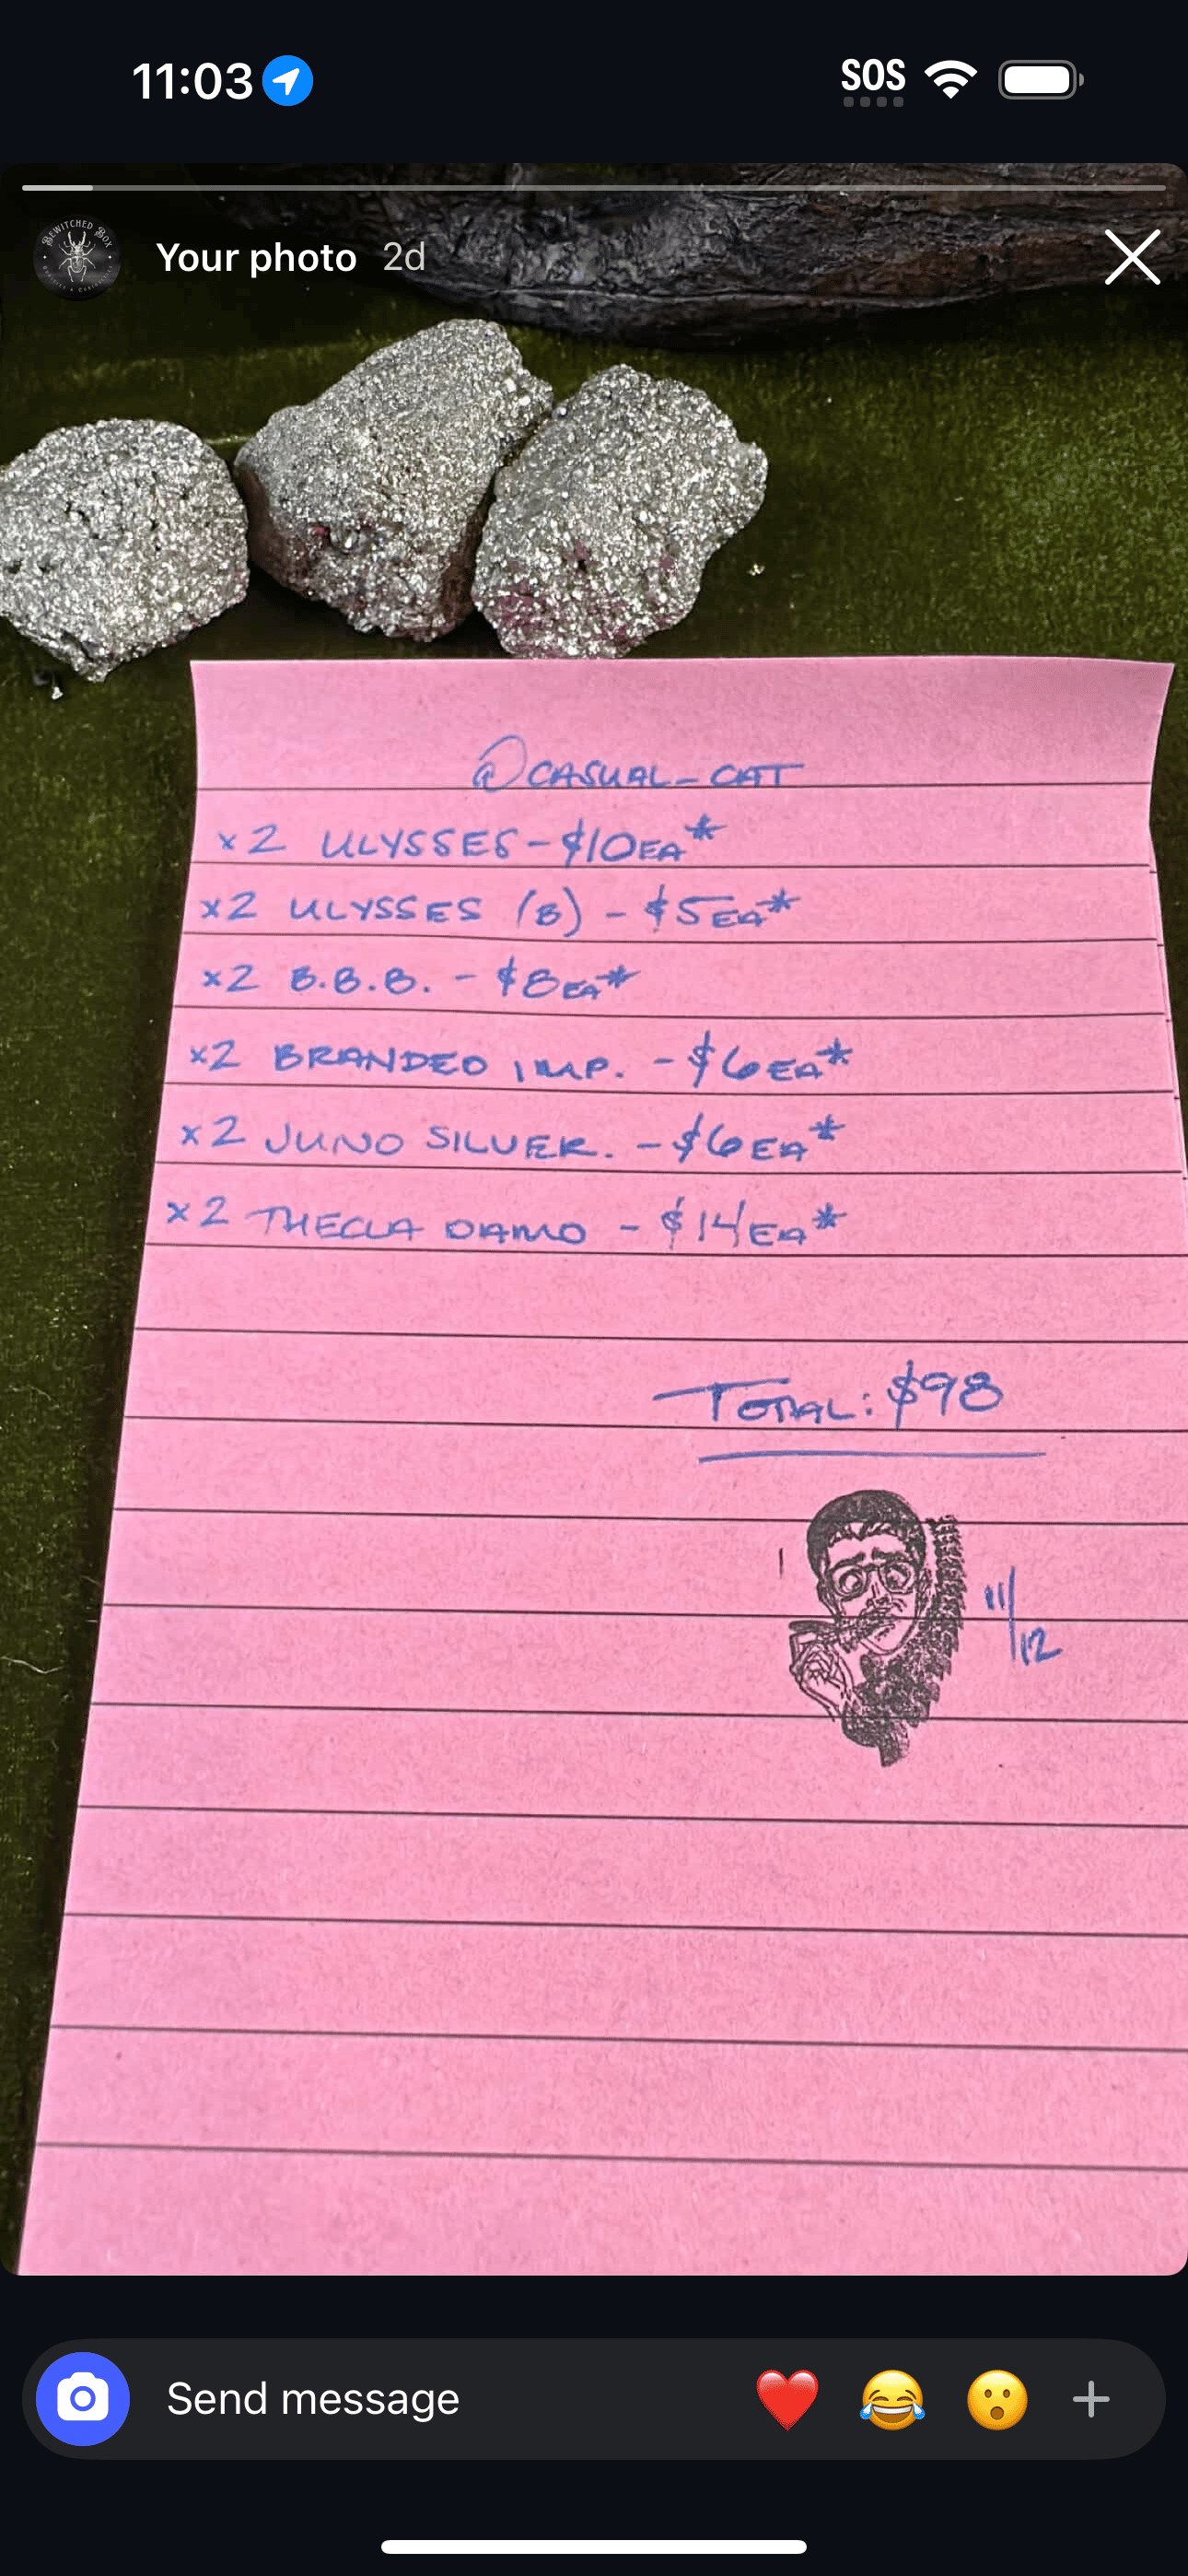 11:03
SOS
BEWITCHED BOX
Your photo 2d
@CASUAL_CAT
x2 ULYSSES - $10EA*
x2 ULYSSES (B) - $5EA*
x2 B.B.B. - $8EA*
x2 BRANDED IMP. - $6EA*
x2 JUNO SILVER. - $6EA*
x2 THECLA DAMO - $14EA*
TOTAL: $98
11/12
Send message